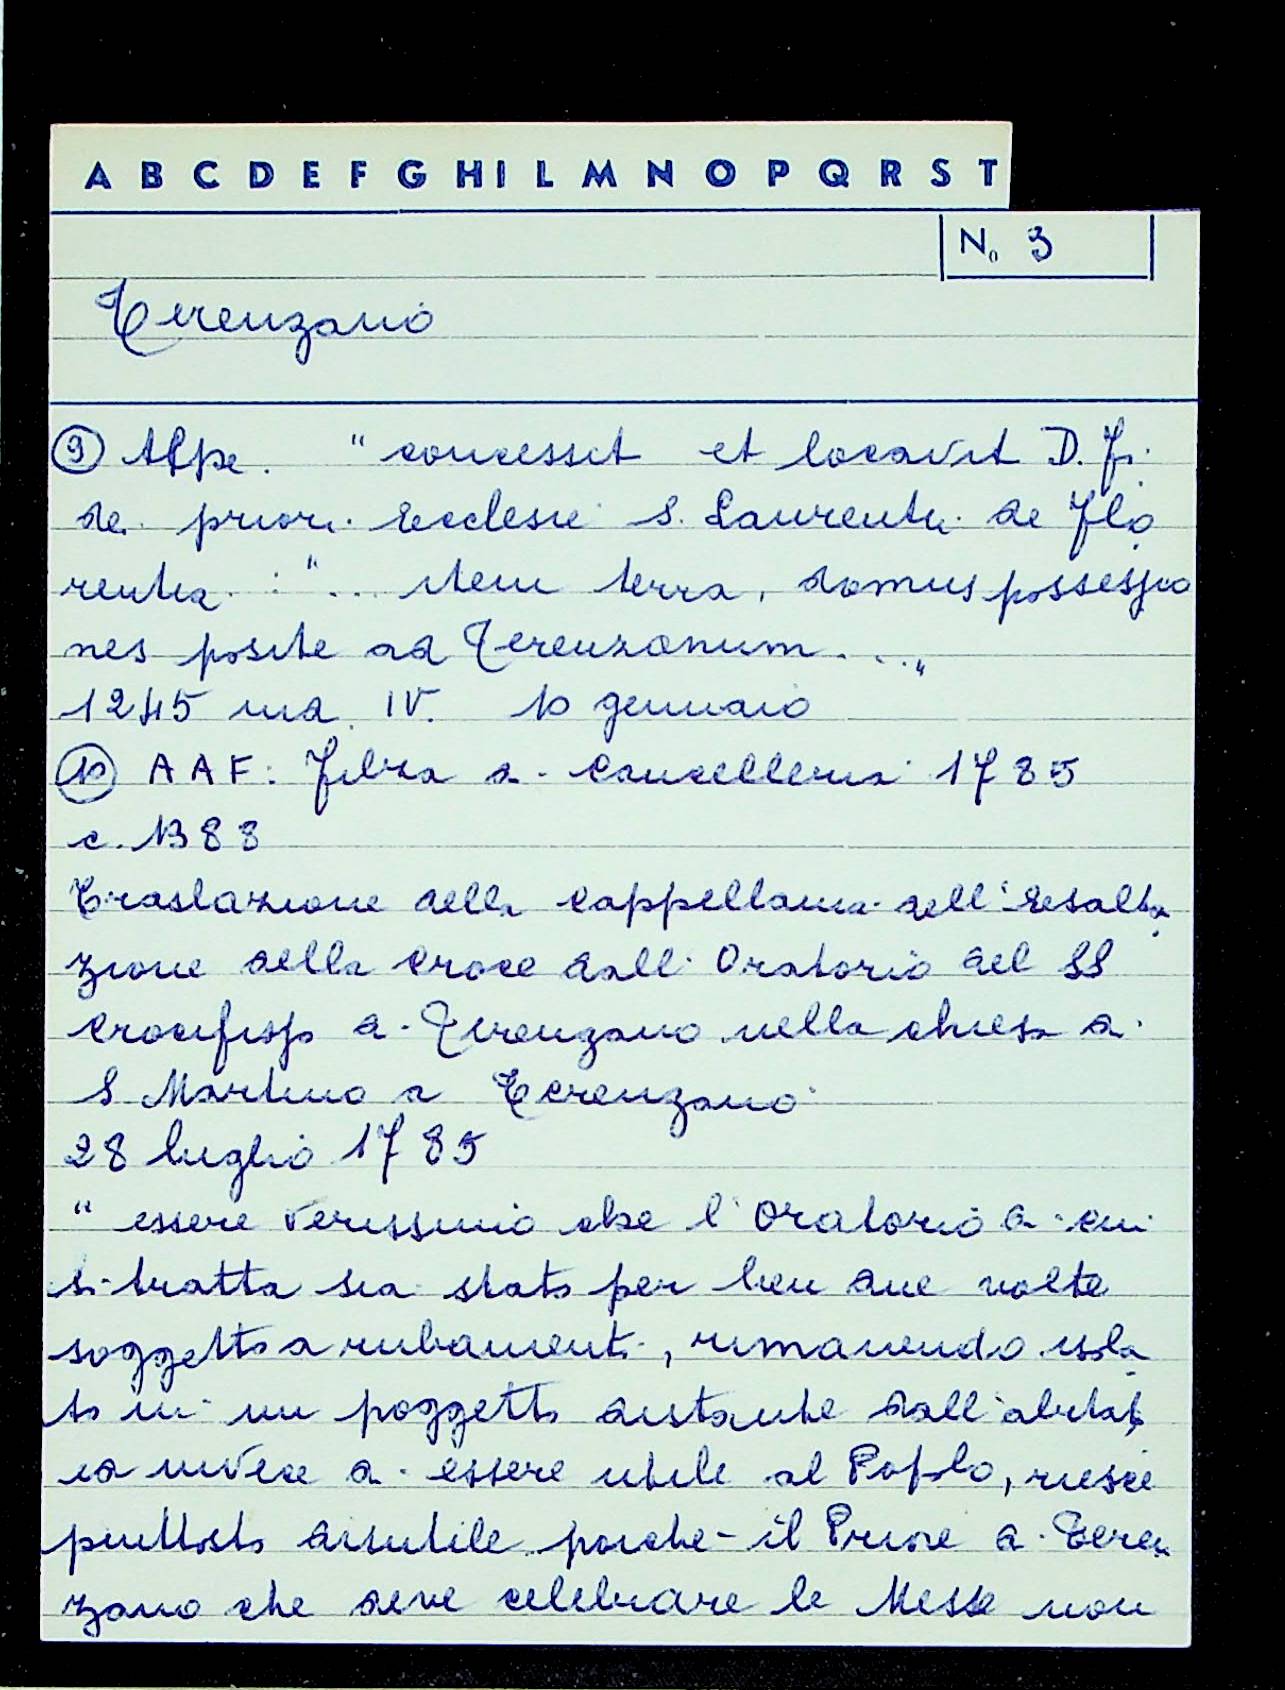 A B C D E F G H I L M N O P Q R S T
No 3
Terenzano
9 "concessit et locavit D. Fi
de priori Ecclesie S. Laurentii de Flo
rentia : "... item terra, domus possessio
nes posite ad Terenzanum ...."
1245 ind. IV. 10 gennaio
10 AAF: Filza di Cancelleria 1785
c. 1388
Traslazione della Cappellania dell'Esalta
zione della Croce dall'Oratorio del SS
Crocifisso di Terenzano nella chiesa di
S Martino a Terenzano
28 luglio 1785
" essere verissimo che l'Oratorio di cui
si tratta sia stato per ben due volte
soggetto a rubamenti, rimanendo isola
to in un poggetto distante dall'abitato
ed invece di essere utile al Popolo, riesce
piuttosto disutile poiché il Priore di Teren
zano che deve celebrare le Messe non